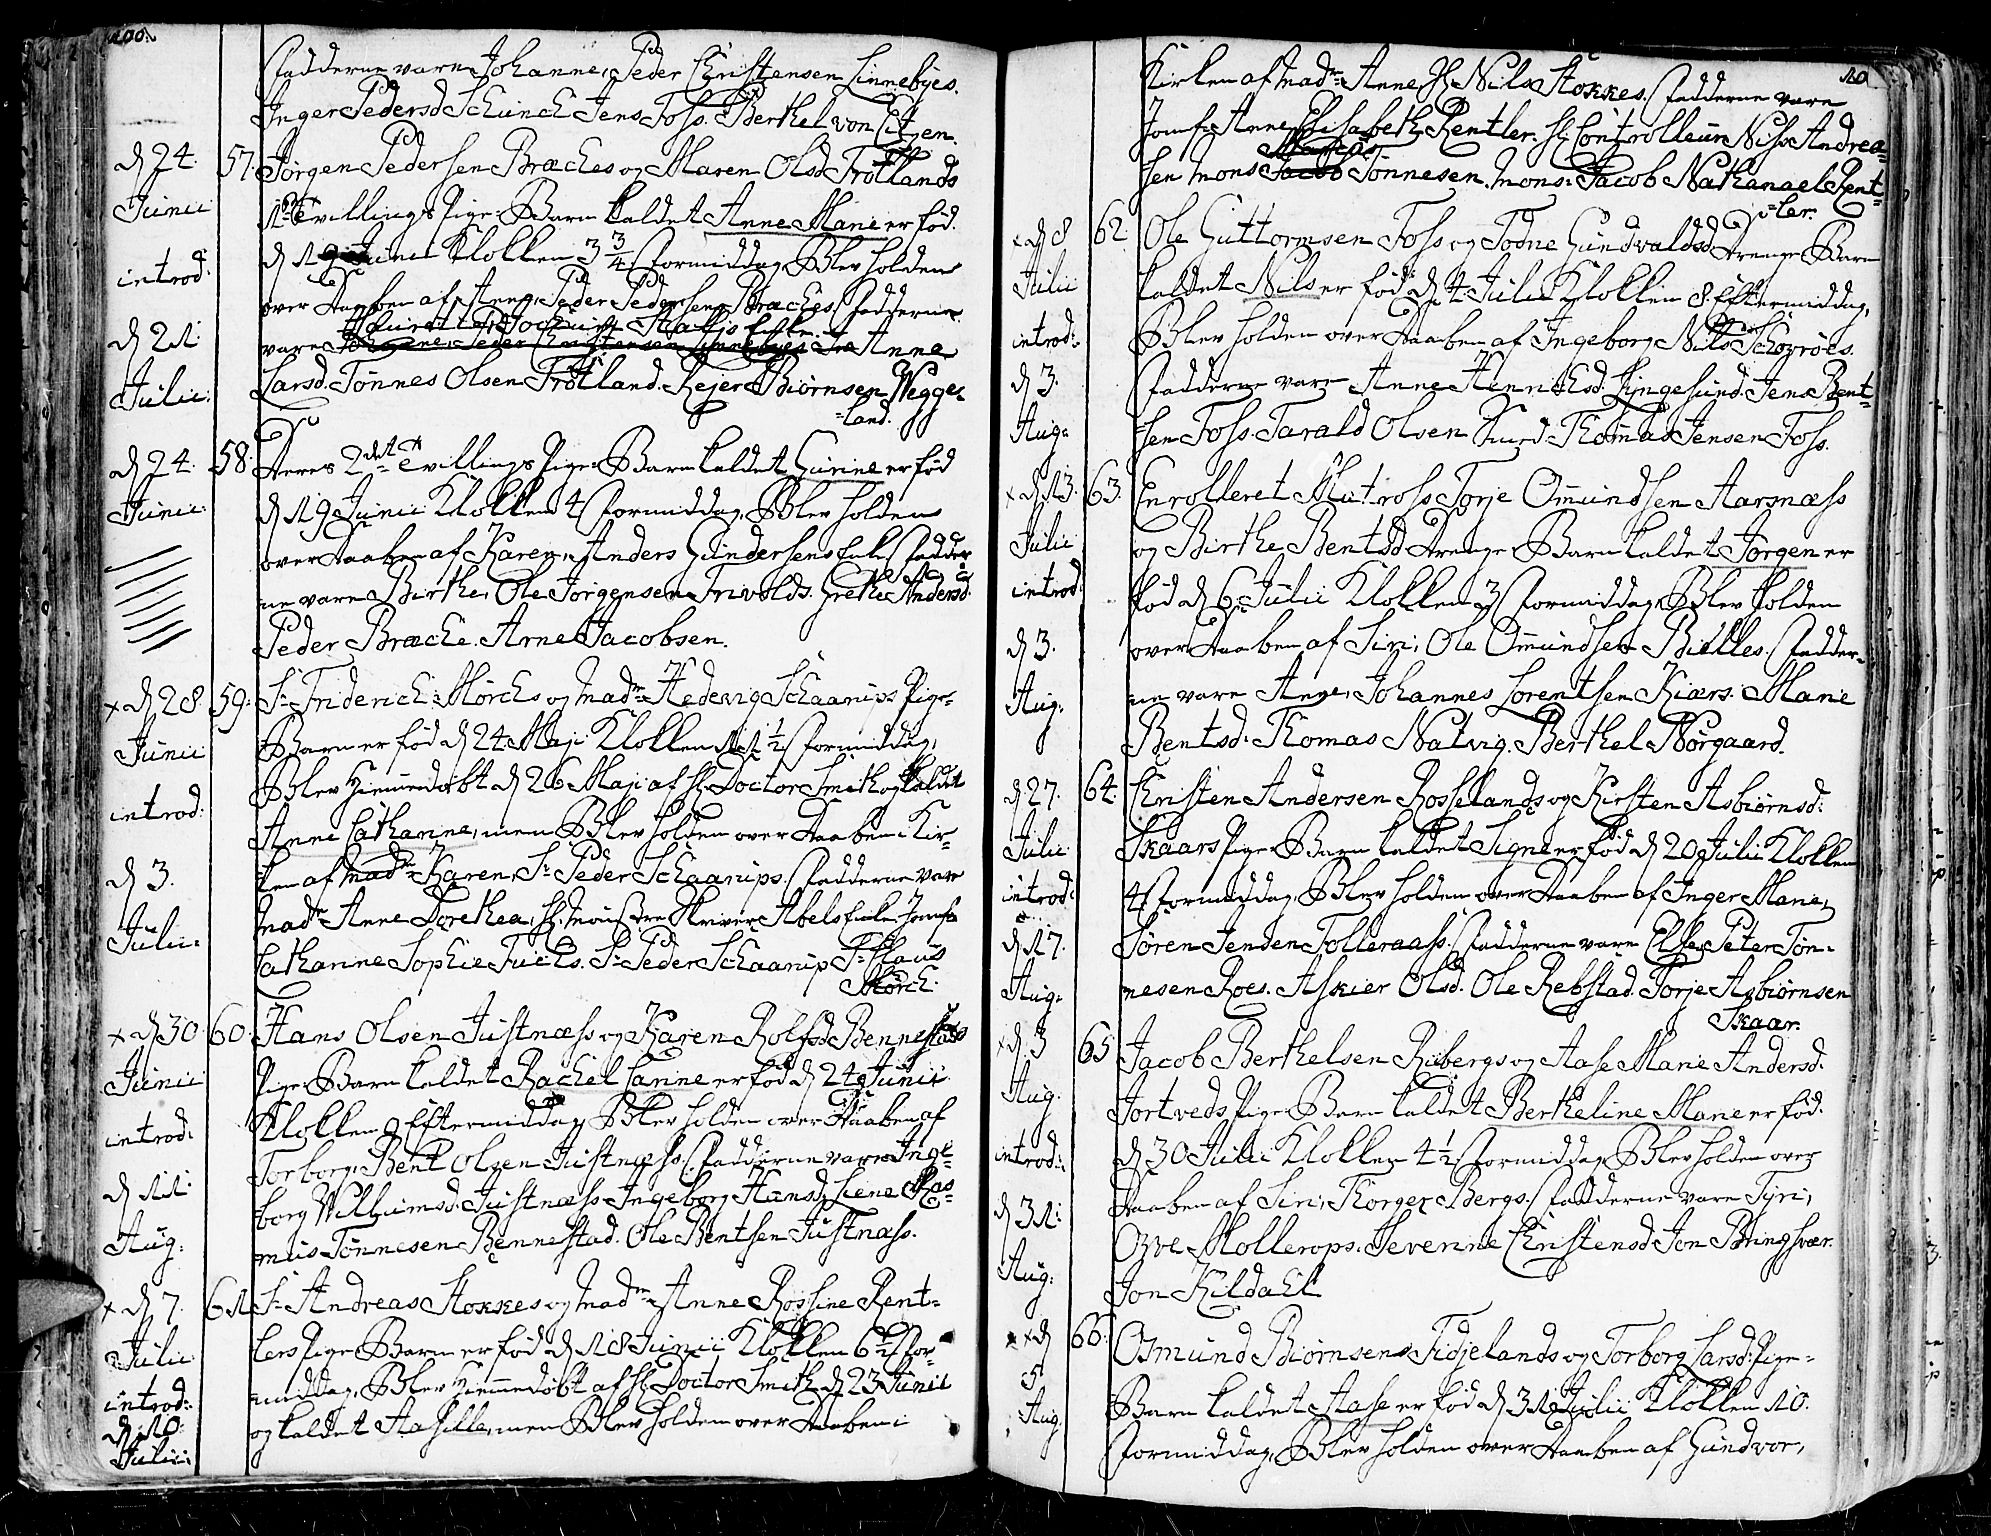 100.
Fadderne vare Johanne, Peder Christensen Linnebyes.
Inger Pedersd Schunch Jens Foss. Berthel von Citzen.
d 24. Junii introd: d 21. Julii:
57. Jørgen Pedersen Bræches og Maren Olsd Frøllands
1ste Tvillings Pige-Barn kaldet Anne Marie er fød.
d 19 Junii Klokken 3 3/4 Formiddag, Blev holden
over Daaben af Anne, Peder Pedersens Bræches. Fadderne
vare Anne
Larsd. Tønnes Olsen Frølland. Rejer Biørnsen Wegge
=land.
d 24. Junii.
58. Deres 2det Tvillings Pige-Barn kaldet Gunne er fød
d 19 Junii Klokken 4 Formiddag, Blev holden
over Daaben af Karen, Anders Gundersens Enke. Fadder
ne vare Birthe, Ole Jørgensen Trivolds. Grethe Andersd.
Peder Bræche. Arne Jacobsen.
x d 28 Junii introd: d 3. Julii:
59. Sr Friderich Mørchs og Mad: Hedevig Schaarups Pige-
Barn er fød d 24 Maji Klokken 11 1/2 Formiddag,
Blev hiemmedøbt d 26 Maji af Hr Doctor Smith og kaldet
Anne Catharine, men Blev holden over Daaben i Kir=
ken af Mad: Karen, Sr Peder Schaarups. Fadderne vare
Mad: Anne Dorethea, Hr Mønster Skriver Abels Enke. Jomfr
Catharine Sophie Fuchs. Sr Peder Schaarup Sr Claus
Mørch.
x d 30 Junii introd: d 11. Aug:
60. Hans Olsen Justnæss og Karen Rolfsd Bennestads
Pige Barn kaldet Rachel Canne er fød d 24 Junii
Klokken 9 Eftermiddag, Blev holden over Daaben af
Torborg, Bent Olsen Justnæss. Fadderne vare Inge=
borg Wilhumsd. Justnæss Ingeborg Hansd, Siene Ras=
mus Tønnesen Bennestad. Ole Bentsen Justnæss.
x d 7. Julii introd: d 10. Julii:
61 Sr Andreas Stokkes og Mad: Anne Rossine Rent=
lers Pige Barn er fød d 18 Junii Klokken 6 1/2 For=
middag, Blev hiemmedøbt af Hr Doctor Smith d 23 Junii
og kaldet Aasille, men Blev holden over Daaben i
10
Kirken af Mad: Anne, Hr Nils Stokkes. Fadderne vare
Jomfr: Anne Elisabeth Rentler. Hr Controlleur Niss Andrea=
sen Mons: Marius Tønnesen. Mons: Jacob Nathanael Rent=
=ler.
x d 8 Julii introd: d 3. Aug:
62. Ole Guttormsen Foss og Todne Gundvaldsd Drenge Barn
kaldet Nils er fød d 4 Julii Klokken 8 Eftermiddag,
Blev holden over Daaben af Ingeborg Nils Schovrøes.
Fadderne vare Anne Henrichsd. Lyngesund. Jens Bent=
sen Foss. Tarald Olsen Sund. Thomas Jensen Foss.
x d 13. Julii introd: d 3. Aug:
63. Enrolleret Matross Torje Omundsen Aarsnæss
og Birthe Bentsd Drenge Barn kaldet Jørgen er
fød d 6 Julii Klokken 3 Formiddag, Blev holden
over Daaben af Siri, Ole Omundsen Bielles. Fadder=
ne vare Anne, Johannes Lorentsen Kiærs. Marie
Bentsd. Thomas Natvig. Berthel Nørgaard.
d 27. Julii introd: d 17. Aug:
64. Christen Andersen Rosselands og Kirsten Asbiørnsd:
Skaars Pige Barn kaldet Signe er fød d 20 Julii Klokken
4 Formiddag, Blev holden over Daaben af Inger Marie,
Søren Jensen Tolleraass. Fadderne vare Else, Peter Tøn=
nesen Roes. Askier Olsd. Ole Rebstad. Torje Asbiørnsen
Skaar.
x d 3 Aug. introd: d 31: Aug:
65 Jacob Berthelsen Ribergs og Aase Marie Andersd.
Jortveds Pige Barn kaldet Bertheline Marie er fød.
d 30 Julii Klokken 4 1/2 Formiddag, Blev holden over
Daaben af Siri, Thorger Bergs. Fadderne vare Tyri,
Ove Mollerops. Severine Christensd Jon Bringsvær.
Jon Kildahl.
x x d 5 Aug.
66. Osmund Biørnsens Fidjelands og Torborg Larsd: Pige-
Barn kaldet Aase er fød d 31 Julii Klokken 10.
Formiddag, Blev holden over Daaben af Gundvor,